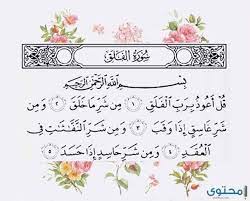 سُورَةُ الْفَلَقِ
بِسْمِ اللَّهِ الرَّحْمَٰنِ الرَّحِيمِ
قُلْ أَعُوذُ بِرَبِّ الْفَلَقِ ١ مِن شَرِّ مَا خَلَقَ ٢ وَمِن
شَرِّ غَاسِقٍ إِذَا وَقَبَ ٣ وَمِن شَرِّ النَّفَّاثَاتِ فِي
الْعُقَدِ ٤ وَمِن شَرِّ حَاسِدٍ إِذَا حَسَدَ ٥
محتوى